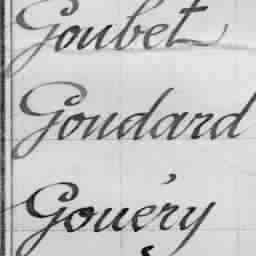 Goubet
Goudard
Gouéry